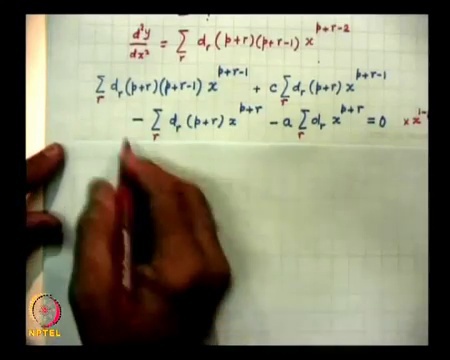 d²y/dx² = Σ_r d_r (p+r)(p+r-1) x^{p+r-2}
Σ_r d_r (p+r)(p+r-1) x^{p+r-1} + c Σ_r d_r (p+r) x^{p+r-1}
- Σ_r d_r (p+r) x^{p+r} - a Σ_r d_r x^{p+r} = 0 × x^{1-
NPTEL